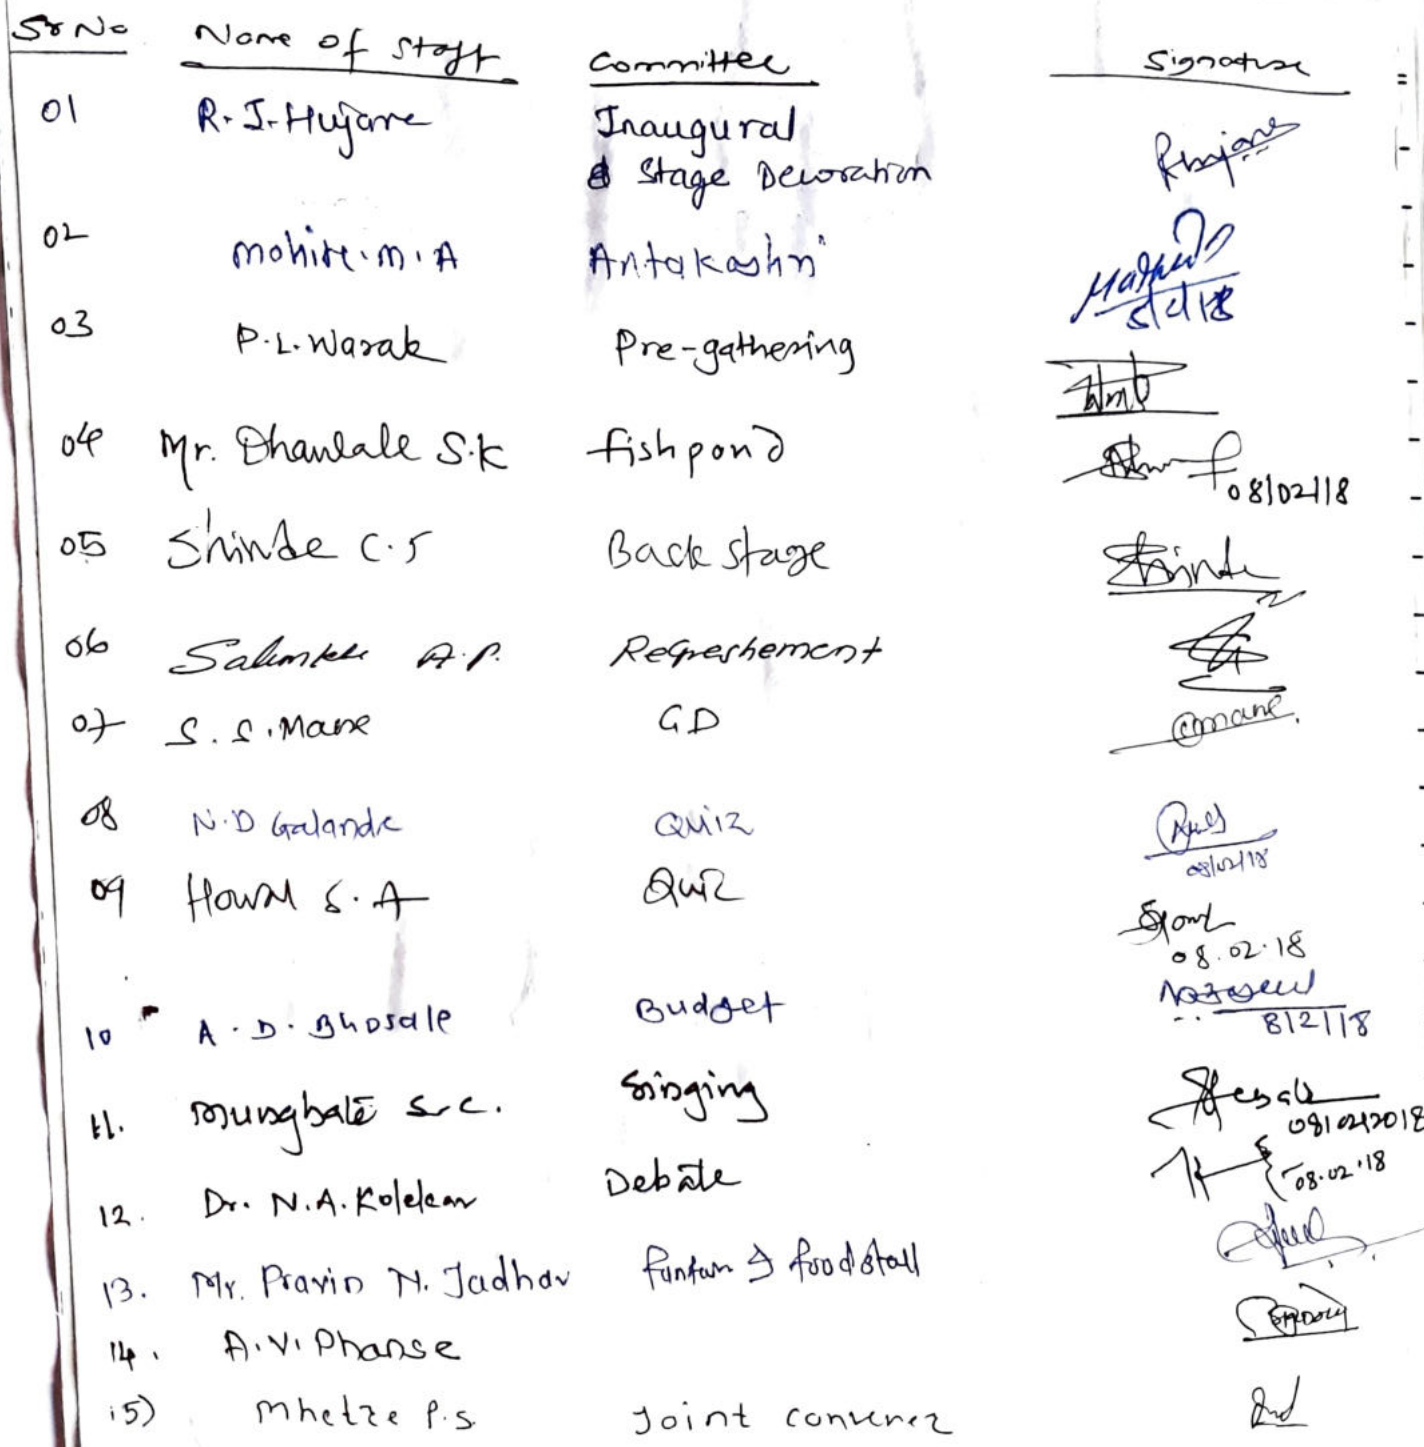 Sr No Name of Staff Committee Signature
01 R. J. Hujare Inaugural
& Stage Decoration
02 Mohite. M. A Antakashri
03 P. L. Warak Pre-gathering
04 Mr. Dhanlale S.K fishpond
08/02/18
05 Shinde C. S Back stage Shinde
06 Salunkhe A. P. Refreshement
07 S. S. Mane GD mane
08 N. D Galande Quiz
08/02/18
09 Howal S. A Quiz
08.02.18
10 A. D. Bhosale Budget
8/2/18
11. Mungbate S. C. Singing
08/02/2018
12. Dr. N. A. Kolekar Debate
08.02.18
13. Mr. Pravin N. Jadhav & food stall
14. A. V. Phanse
15) Mhetre P. S. Joint convener